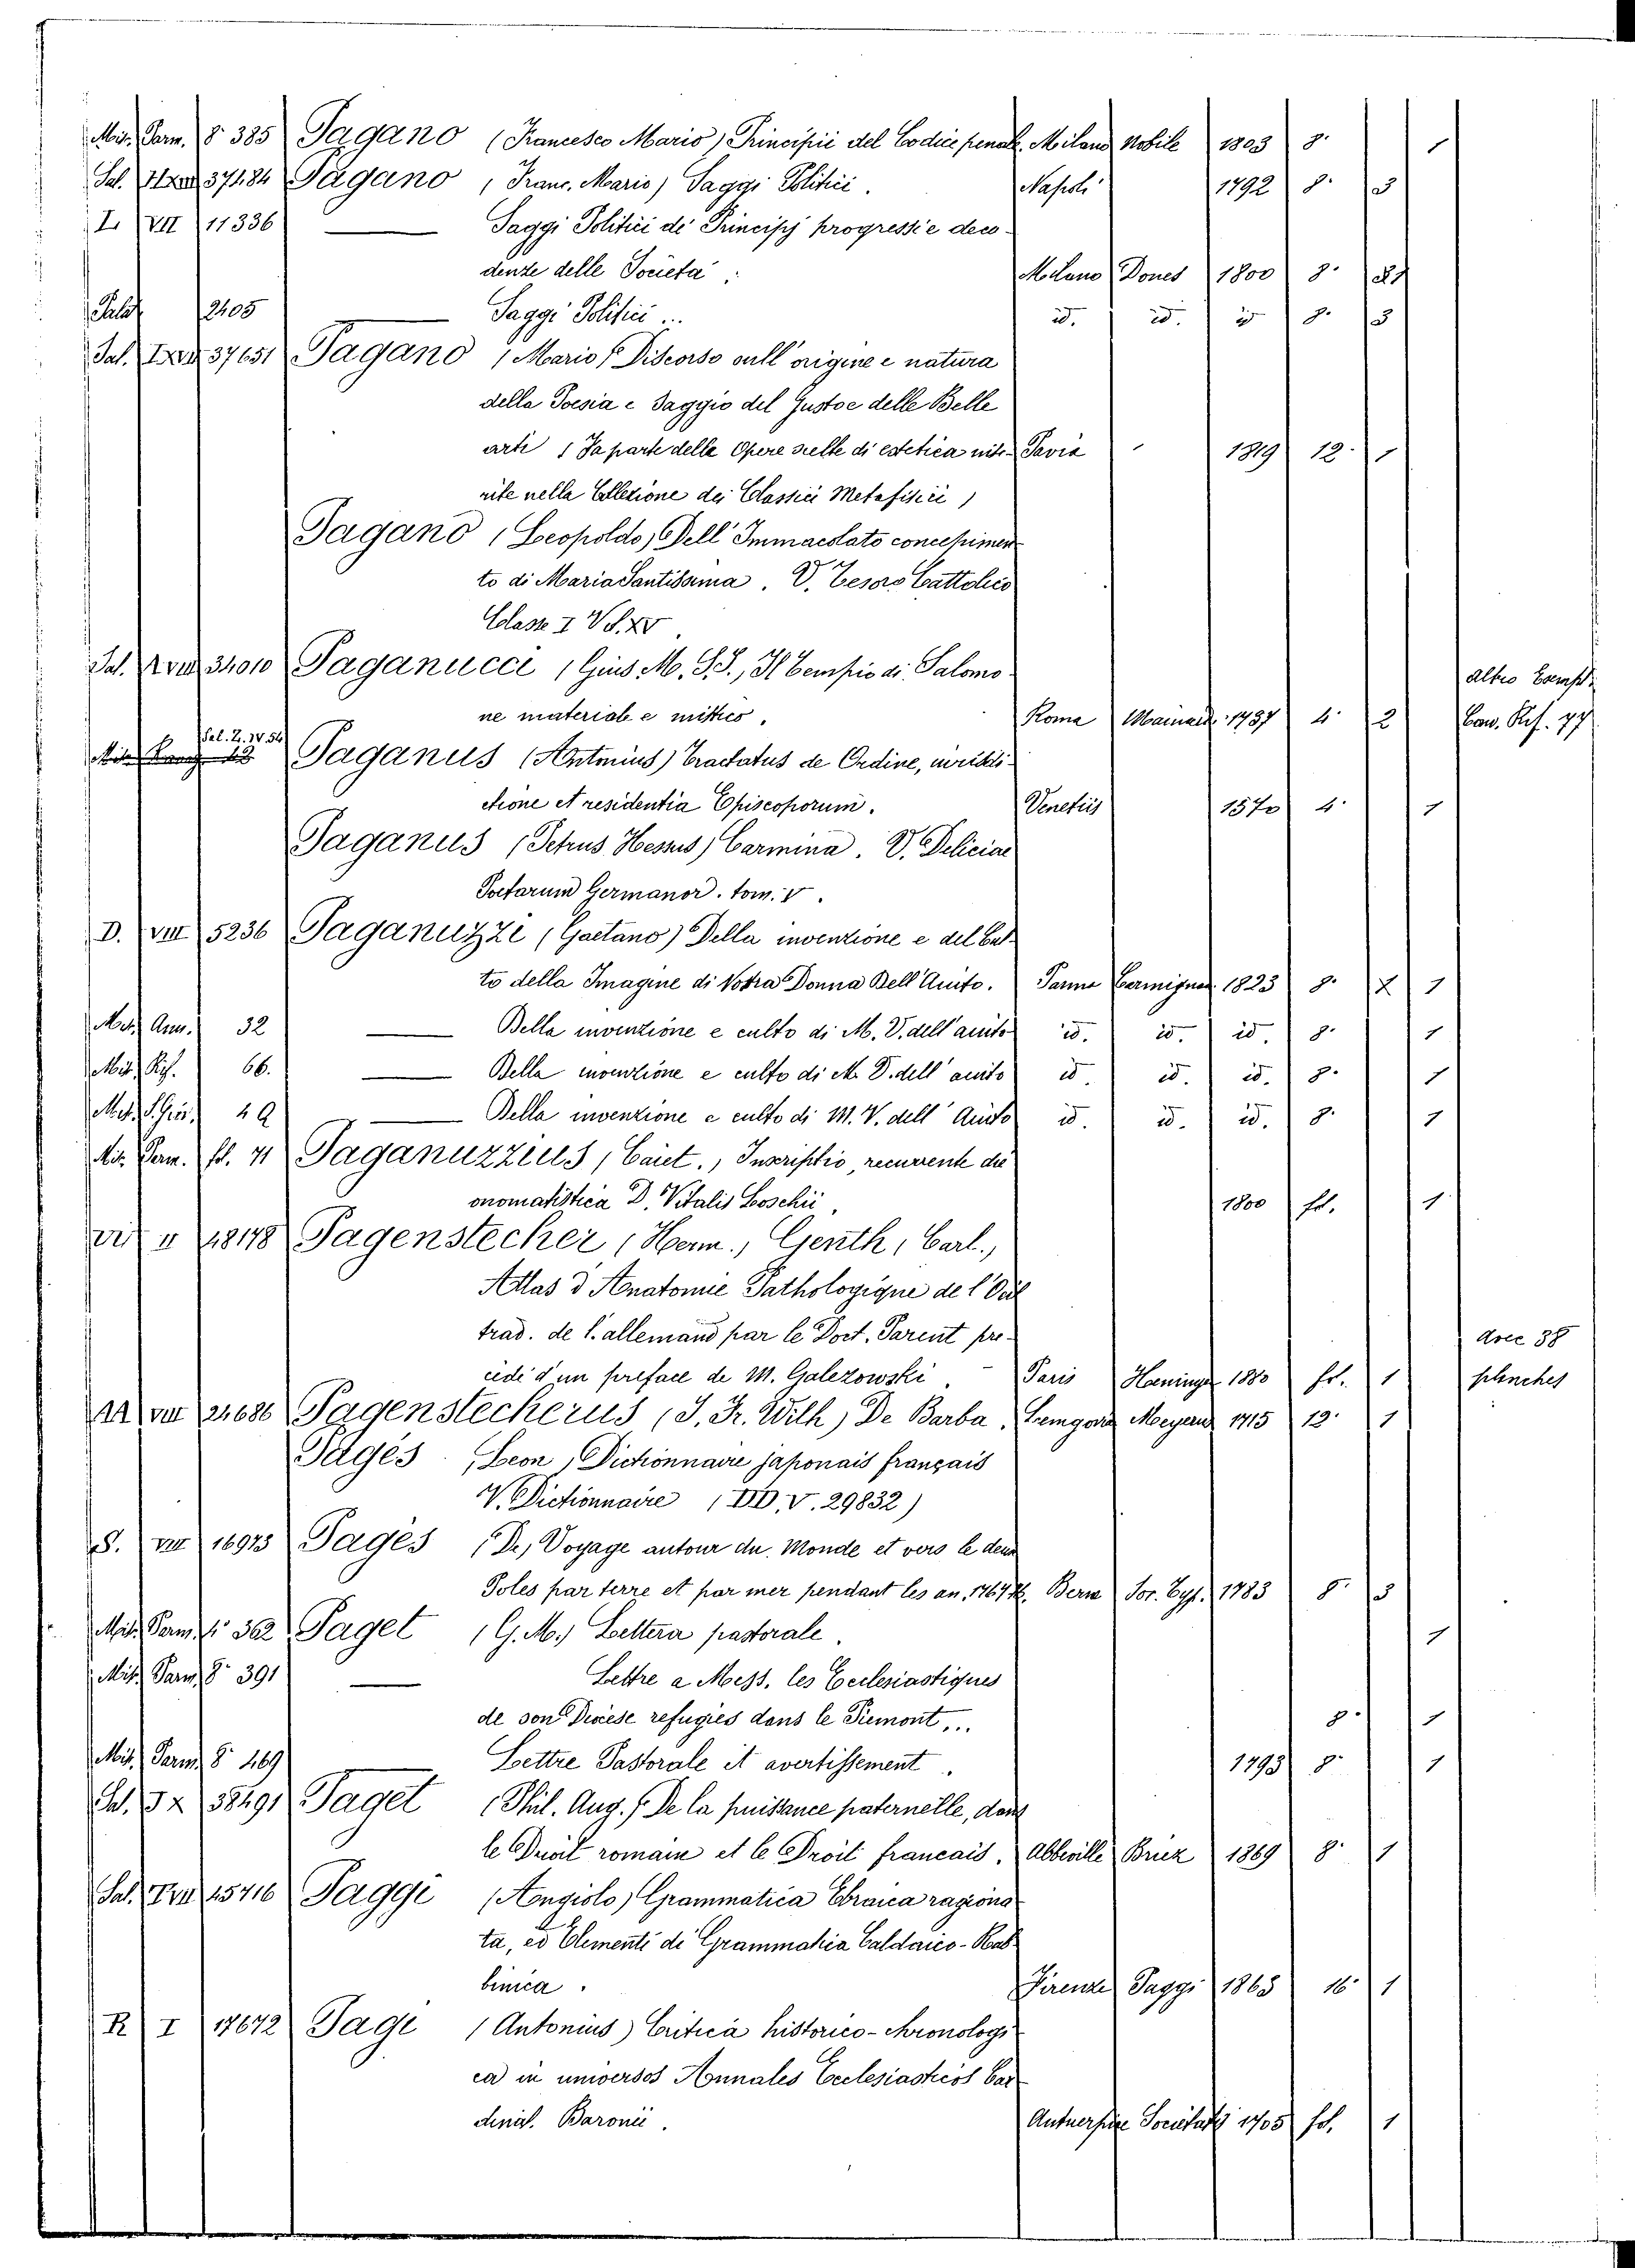 Mis. Parm. 8º 385 Pagano (Francesco Mario) Principii del Codice penale. Milano Nobile 1803 8º 1
Sal. 37484 Pagano (Franc. Mario) Saggi Politici. Napoli 1792 8º 3
I. VII 11336 —— Saggi Politici di Principj progressi e deca-
denze delle Società. Milano Dones 1800 8º
Palat. 2405 —— Saggi Politici... id. id. id 8º 3
Sal. 37651 Pagano (Mario) Discorso sull'origine e natura
della Poesia e Saggio del Gusto e delle Belle
arti (Fa parte delle Opere scelte di estetica inse- Pavia 1819 12º 1
rite nella Collezione dei Classici Metafisici)
Pagano (Leopoldo) Dell'Immacolato concepimen-
to di Maria Santissima. V. Tesoro Cattolico
Classe I Vol. XV
Sal. 34010 Paganucci (Gius. M. S.J., Il Tempio di Salomo-
ne materiale e mistico. Roma Mainardi 1737 4º 2
altro Esempl.
Cav. Rif. 77
Sal. Z. IV. 54
Paganus (Antonius) Tractatus de Ordine, jurisdi-
ctione et residentia Episcoporum. Venetiis 1570 4º 1
Paganus (Petrus Hessus) Carmina. V. Deliciae
Poetarum Germanor. tom. V.
D. VIII 5236 Paganuzzi (Gaetano) Della invenzione e del Cul-
to della Imagine di Nostra Donna Dell'Aiuto. Parma Carmignani 1823 8º X 1
Mis. Ann. 32 —— Della invenzione e culto di M. V. dell'aiuto id. id. id. 8º 1
Mis. Rif. 66. —— Della invenzione e culto di M. V. dell'aiuto id. id. id. 8º 1
Mis. S. Giov. 49 —— Della invenzione e culto di M. V. dell'Aiuto id. id. id. 8º 1
Mis. Parm. fol. 71 Paganuzzius (Caiet., Inscriptio, recurrente die
onomastica D. Vitalis Loschii. 1800 fol. 1
48178 Pagenstecher (Herm., Genth, Carl.,
Atlas d'Anatomie Pathologique de l'Oeil
trad. de l'allemand par le Doct. Parent pre-
cédé d'un preface de M. Galezowski. Paris 1880 fol. 1
Avec 38
planches
AA VIII 24686 Pagenstecherus (J. Fr. Wilh) De Barba. Lemgoviae Meyeri 1715 12º 1
Pagès (Leon) Dictionnaire japonais français
V. Dictionnaire (DD. V. 29832)
S. VIII 16973 Pagès (De) Voyage autour du Monde et vers le deux
Poles par terre et par mer pendant les an. 1767 76. Berne Soc. Typ. 1783 8º 3
Mis. Parm. 4º 362 Paget (G. M.) Lettera pastorale. 1
Mis. Parm. 8º 391 —— Lettre a Mess. les Ecclesiastiques
de son Diocese refugiés dans le Piemont... 8º 1
Mis. Parm. 8º 469 Lettre Pastorale et avertissement. 1793 8º 1
Sal. 38491 Paget (Phil. Aug.) De la puissance paternelle, dans
le Droit romain et le Droit francais. Abbeville Briez 1869 8º 1
Sal. 45716 Paggi (Angiolo) Grammatica Ebraica ragiona-
ta, ed Elementi di Grammatica Caldaico-Rab-
binica. Firenze Paggi 1863 16º 1
R I 17672 Pagi (Antonius) Critica historico-chronologi-
ca in universos Annales Ecclesiasticos Car-
dinal. Baronii. Antuerpiae Societatis 1705 fol. 1